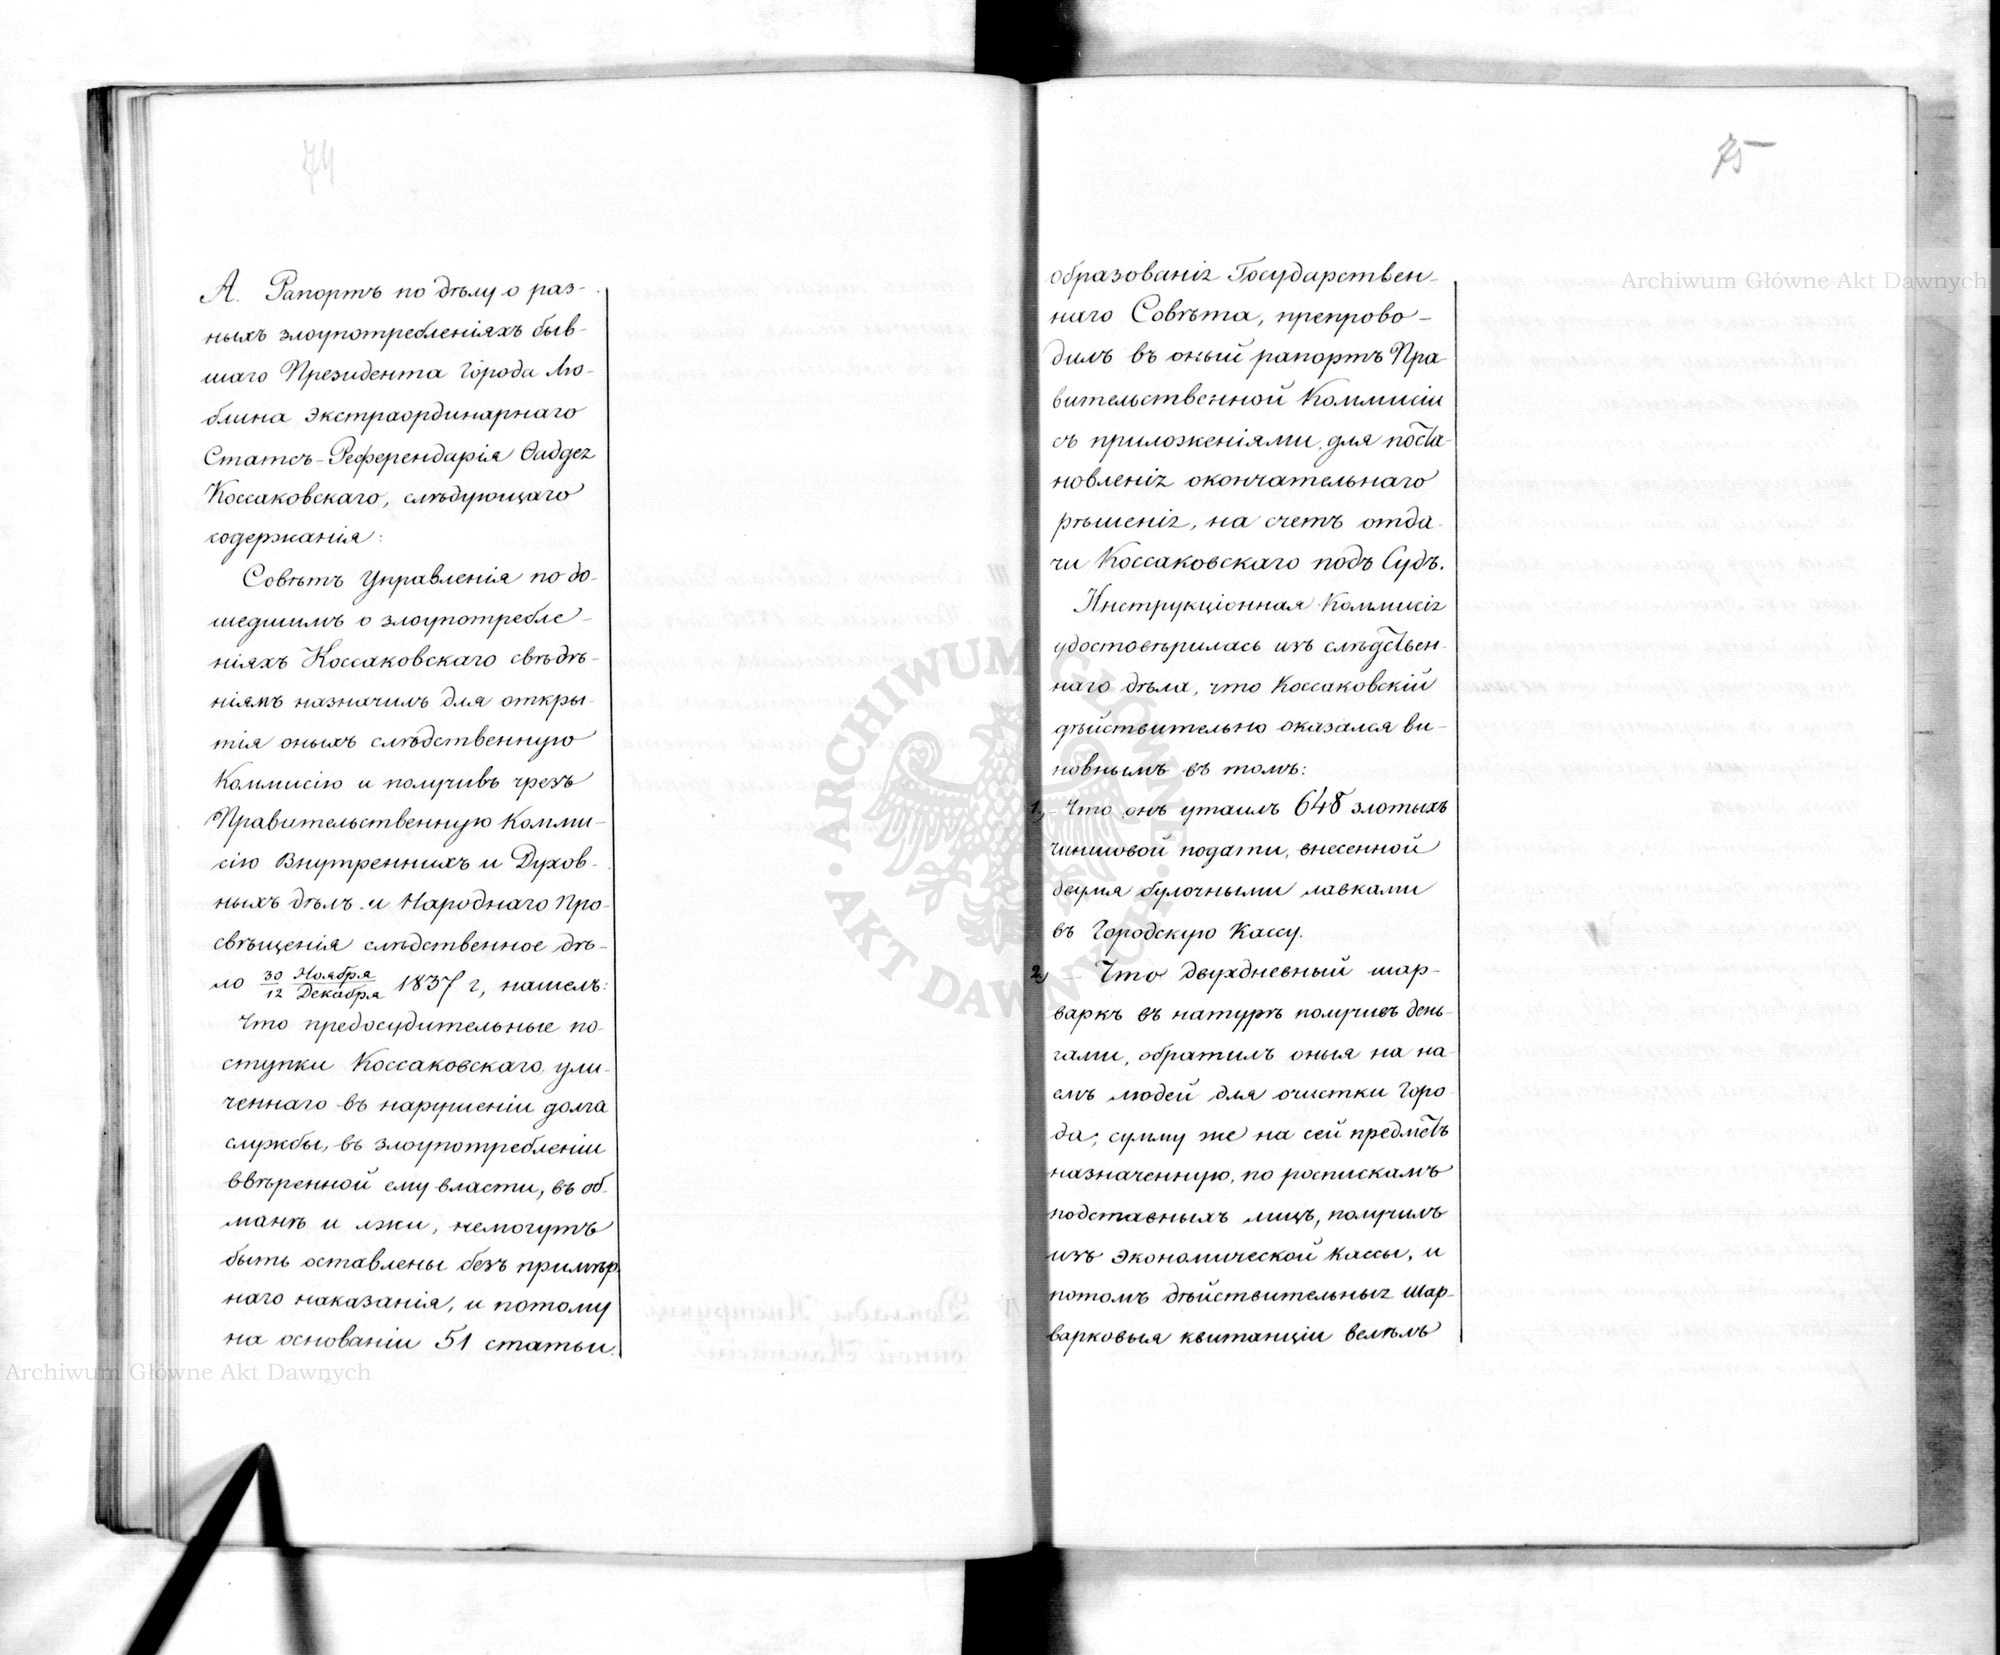 74
А. Рапортъ по дѣлу о раз-
ныхъ злоупотребленіяхъ быв-
шаго Президента Города Лю-
блина Экстраординарнаго
Статсъ-Референдарія Фаддея
Коссаковскаго, слѣдующаго
содержанія:
Совѣтъ Управленія по до-
шедшимъ о злоупотребле-
ніяхъ Коссаковскаго свѣдѣ-
ніямъ назначилъ для откры-
тія оныхъ слѣдственную
Коммисію и получивъ чрезъ
Правительственную Комми-
сію Внутреннихъ и Духов-
ныхъ дѣлъ и Народнаго Про-
свѣщенія слѣдственное дѣ-
ло 30 Ноября / 12 Декабря 1837 г, нашелъ:
Что предосудительные по-
ступки Коссаковскаго, ули-
ченнаго въ нарушеніи долга
службы, въ злоупотребленіи
ввѣренной ему власти, въ об-
манѣ и лжи, немогутъ
быть оставлены безъ примѣр-
наго наказанія, и потому
на основаніи 51 статьи
75
образованія Государствен-
наго Совѣта, препрово-
дилъ въ оный рапортъ Пра-
вительственной Коммисіи
съ приложеніями, для поста-
новленія окончательнаго
рѣшенія, на счетъ отда-
чи Коссаковскаго подъ Судъ.
Инструкціонная Коммисія
удостовѣрилась изъ слѣдствен-
наго дѣла, что Коссаковскій
дѣйствительно оказался ви-
новнымъ въ томъ:
1, - Что онъ утаилъ 648 злотыхъ
чиншовой подати, внесенной
двумя булочными лавками
въ Городскую Кассу.
2, - Что двухдневный шар-
варкъ въ натурѣ получивъ день-
гами, обратилъ оныя на на-
емъ людей для очистки Горо-
да; сумму же на сей предметъ
назначенную, по роспискамъ
подставныхъ лицъ, получилъ
изъ Экономической Кассы, и
потомъ дѣйствительныя шар-
варковыя квитанціи велѣлъ
Archiwum Główne Akt Dawnych
Archiwum Główne Akt Dawnych
ARCHIWUM GŁÓWNE AKT DAWNYCH